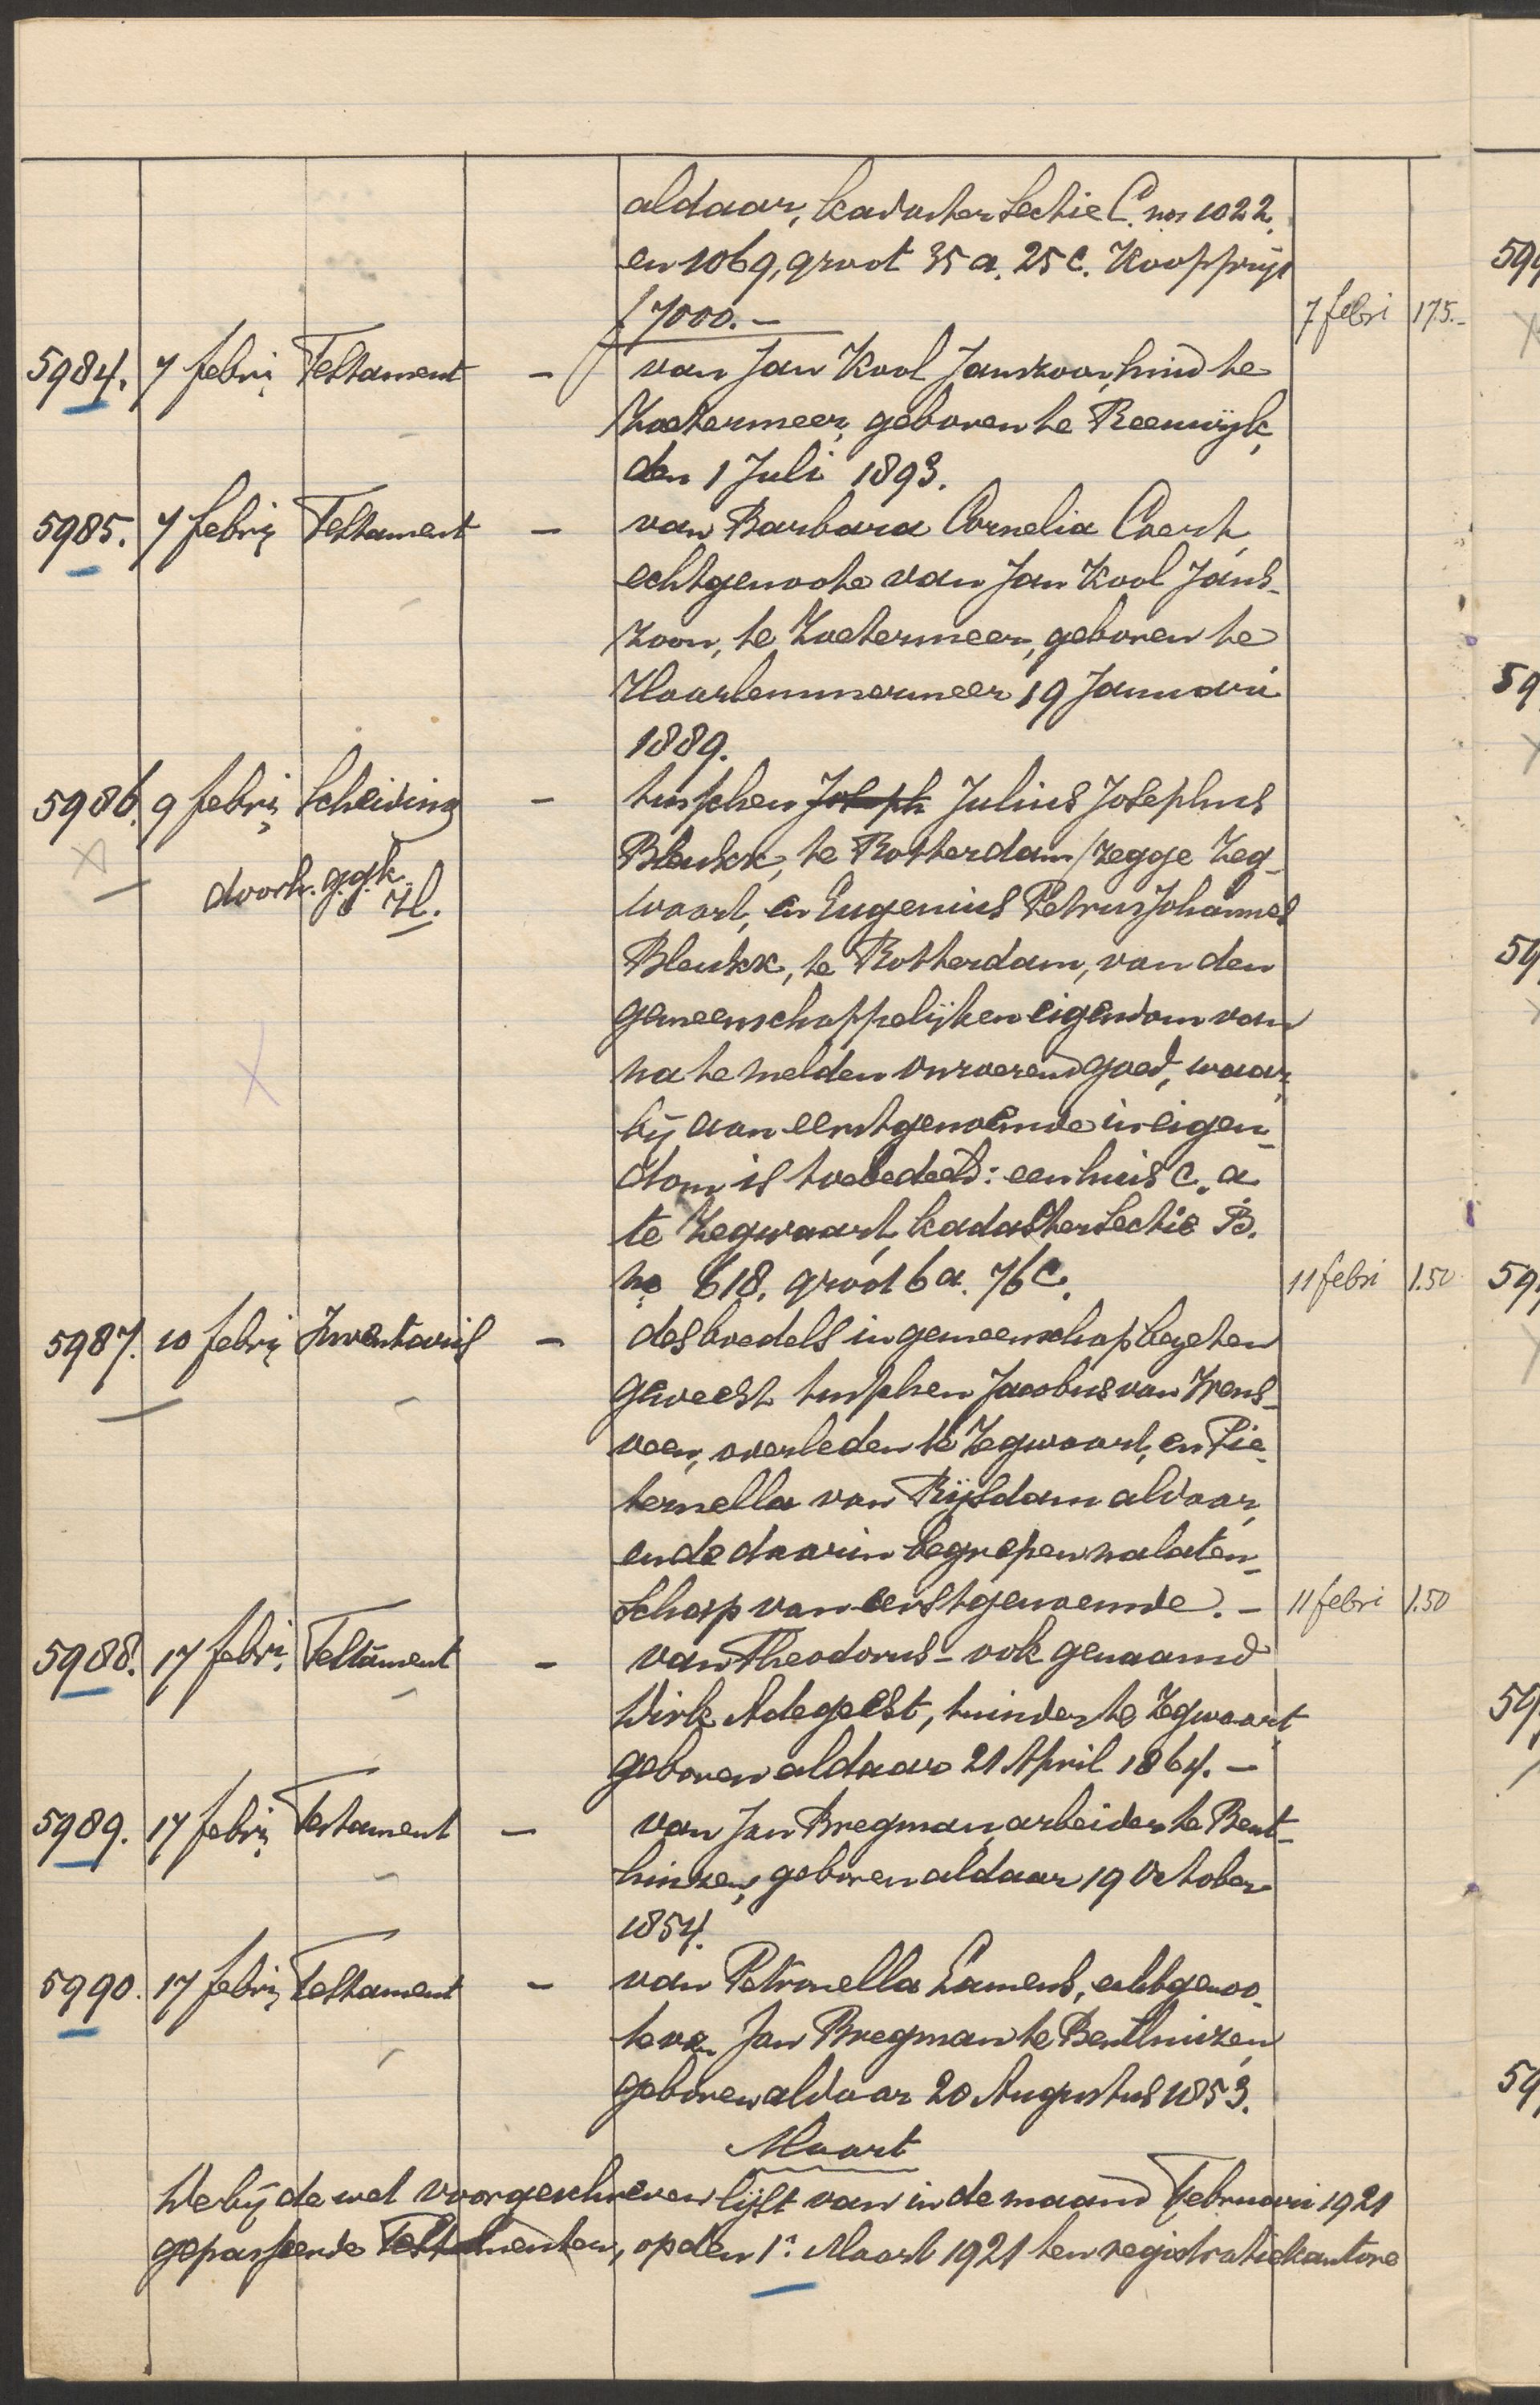 aldaar, kadaster Sectie C. nos 1022.
en 1069, groot 35 a. 25 c. Koopprijs
f 7000.— 7 febri 175.-
5984. 7 febri Testament — van Jan Kool Janszoon, te
Zoetermeer, geboren te Reeuwijk,
den 1 Juli 1893.
5985. 7 febri Testament — van Barbara Cornelia
echtgenoote van Jan Kool Jans-
zoon, te Zoetermeer, geboren te
Haarlemmermeer 19 Januari
1889.
5986. 9 febri Scheiding — tusschen Joseph Julius Josephus
doorh. g.g.k. te Rotterdam /zegge Zeg-
H. waart, en Eugenius Petrus Johannes
te Rotterdam, van den
gemeenschappelijken eigendom van
na te melden onroerend goed, waar-
bij aan eerstgenoemde in eigen-
dom is toebedeeld: een huis c.a.
te Zegwaart, kadaster Sectie B.
no 618. groot 6 a. 76 c. 11 febri 1.50
5987. 10 febri Inventaris — des boedels in gemeenschap bezeten
geweest tusschen Jacobus van
veen, overleden te Zegwaart, en Pie-
ternella van Rijsdam aldaar,
en de daarin begrepen nalaten-
schap van eerstgenoemde. — 11 febri 1.50
5988. 17 febri. Testament — van Theodorus - ook genaamd
Dirk Adegeest, tuinder te Zegwaart
geboren aldaar 21 April 1864. —
5989. 17 febri Testament — van Jan Bregman, arbeider te Bent-
huizen, geboren aldaar 19 October
1854.
5990. 17 febri Testament — van Petronella Lamens, echtgenoo-
te van Jan Bregman te Benthuizen,
geboren aldaar 20 Augustus 1853.
Maart
De bij de wet voorgeschreven lijst van in de maand Februari 1921
gepasseerde Testamenten, op den 1n Maart 1921 ten registratiekantore